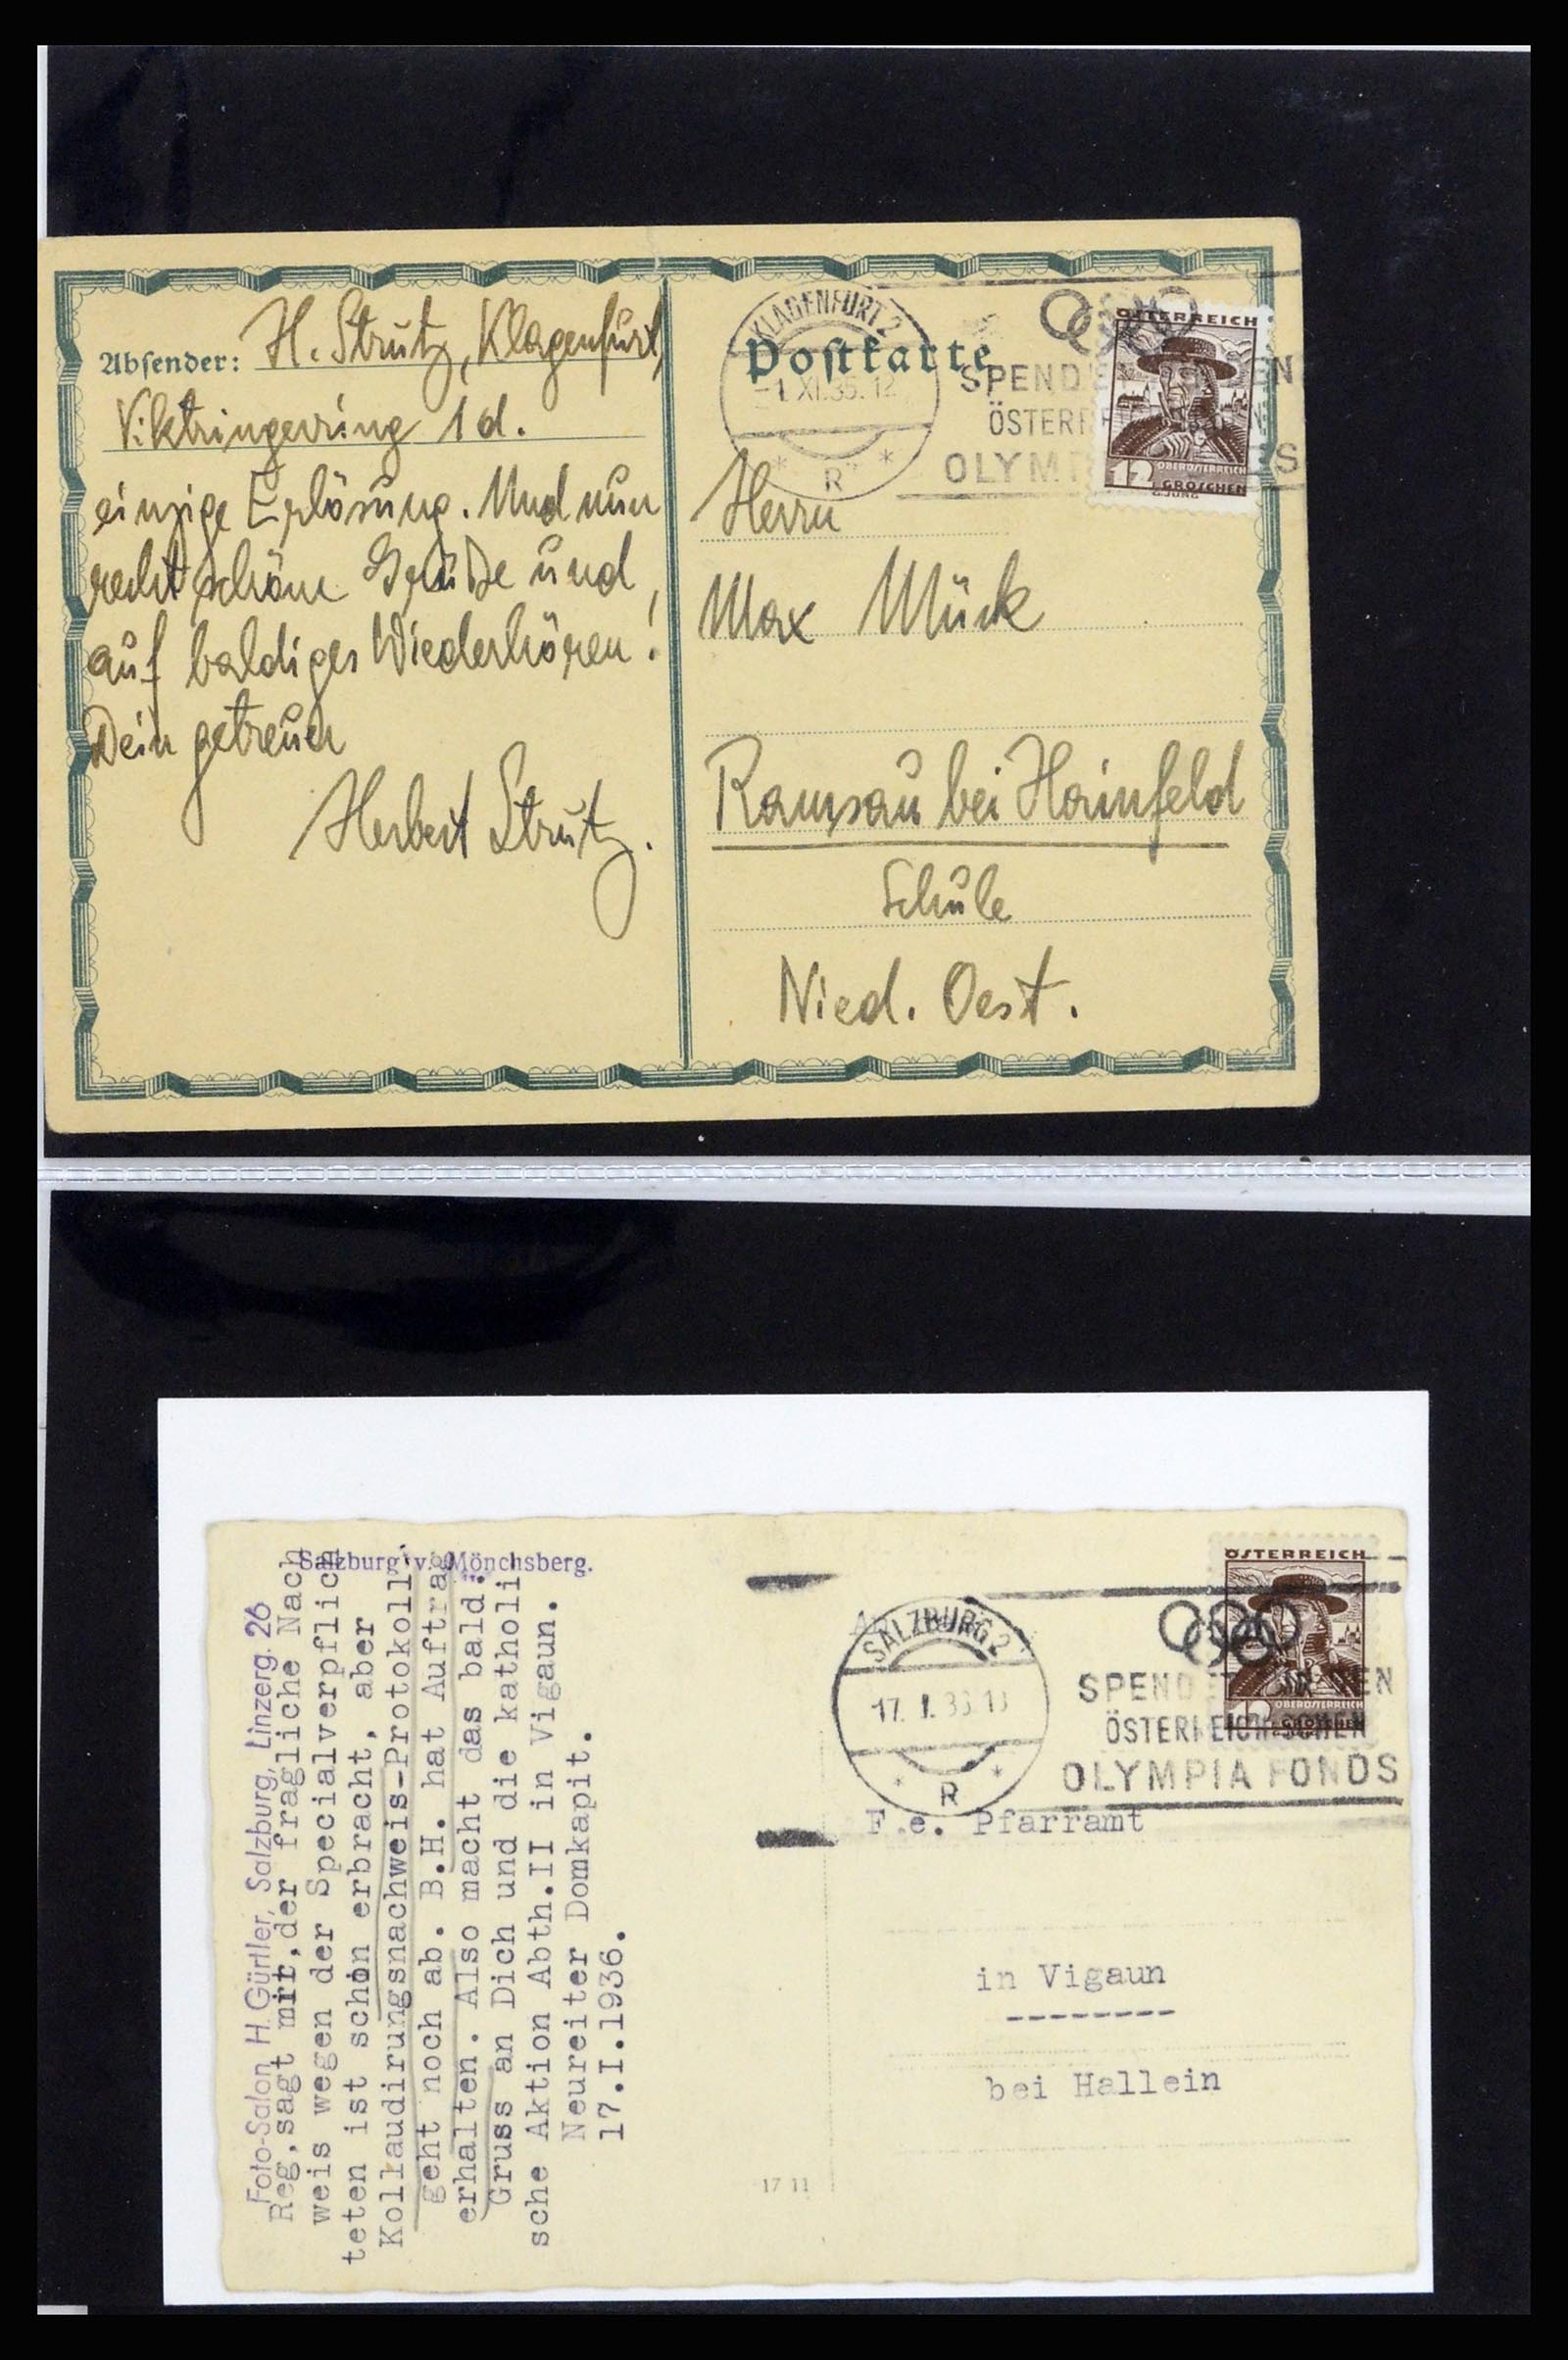 Absender: H. Strutz, Klagenfurt,
Viktringerring 1 d.
einzige Erlösung. Und nun
recht schöne Grüße und,
auf baldiges Wiederhören!
Dein getreuer
Herbert Strutz.
Postkarte
KLAGENFURT 2
-1. XI. 35. 12
* R *
SPENDE EN
ÖSTERR
OLYMP S
ÖSTERREICH
12 OBERÖSTERREICH
GROSCHEN
G. JUNG
Herrn
Max Mück
Ramsau bei Hainfeld
Schule
Nied. Oest.
Salzburg v. Mönchsberg.
Foto-Salon H. Gürtler, Salzburg, Linzerg. 26
Reg. sagt mir, der fragliche Nach
weis wegen der Specialverpflich
teten ist schon erbracht, aber
Kollaudirungsnachweis-Protokoll
geht noch ab. B.H. hat Auftrag
erhalten. Also macht das bald.
Gruss an Dich und die katholi
sche Aktion Abth.II in Vigaun.
Neureiter Domkapit.
17.I.1936.
17 11
SALZBURG 2
17. I. 36
* R *
SPENDET EN
ÖSTERREICHISCHEN
OLYMPIA FONDS
ÖSTERREICH
12 OBERÖSTERREICH
GROSCHEN
F.e. Pfarramt
in Vigaun
bei Hallein